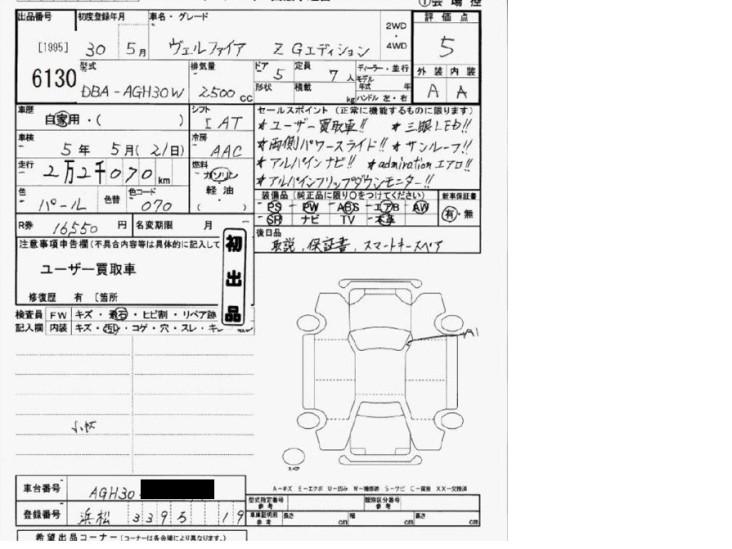 出品番号 初度登録年月 車名・グレード 2WD ・ 4WD 評価点
[1995] 30 5月 ヴェルファイア ZGエディション 5
6130
型式 排気量 ドア 定員 ディーラー・並行 外装 内装
DBA-AGH30W 2500cc 5 7人 モデル年式 年 A A
形状 積載 kg ハンドル 左・右
車歴 シフト セールスポイント(正常に機能するものに限ります)
自家用・( ) IAT ★ユーザー買取車!! ★三眼LED!!
車検 冷房 ★両側パワースライド!! ★サンルーフ!!
5年 5月(21日) AAC ★アルパインナビ!! ★admirationエアロ!!
走行 燃料 ★アルパインフリップダウンモニター!!
2万2千070km ガソリン
軽油
( )
色 色替 色コード 装備品(純正品に限り○をつけてください) 新車保証書
パール 070 PS PW ABS エアB AW 有・無
SR ナビ TV 本革
R券 16550円 名変期限 月 後日品
取説、保証書、スマートキースペア
注意事項申告欄(不具合内容等は具体的に記入して
初出品
ユーザー買取車
修復歴 有 [箇所
検査員 FW キズ・飛石・ヒビ割・リペア跡
記入欄 内装 キズ・汚れ・コゲ・穴・スレ・キ
A1
スペア
A-キズ E-エクボ U-凹み W-補修跡 S-サビ C-腐食 XX-交換済
車台番号 AGH30-
型式指定番号 参考 類別区分番号 参考
登録番号 浜松 3395 19
車庫証明用 参考 長さ cm 幅 cm 高さ cm
希望出品コーナー(コーナーは各会場により異なります。)